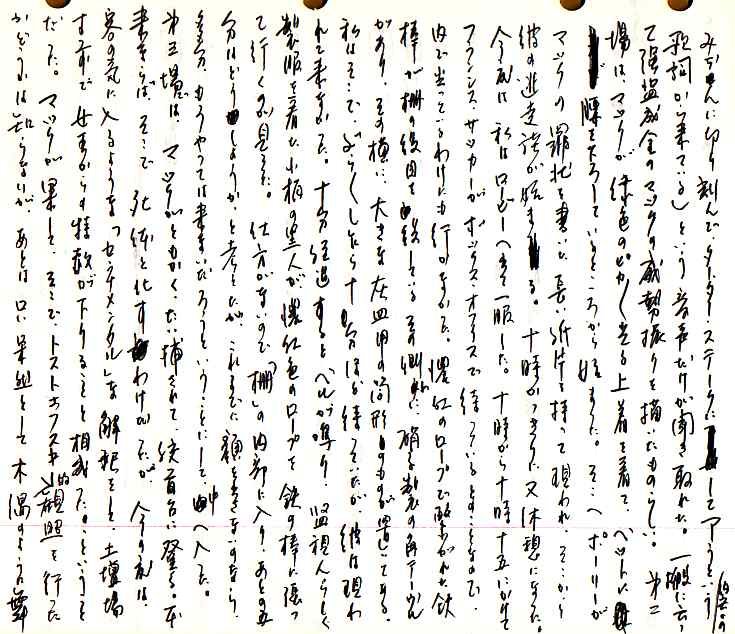 みじんに切り刻んで、タータ・ステーキにしてやろうという
歌詞から来ている)という音声だけが聞き取れた。一般に云っ
て強盗成金のマックの威勢振りを描いたものらしい。第二
場は、マックが緑色のピカピカ光る上着を着て、ベットに
腰を下ろしているところから始まった。そこへポーリーが
マックの罪状を書いた長い紙片を持って現われ、そこから
彼の逃走談が始まる。十時かっきりに又休憩になった。
今度は私はロビーへ出て一服した。十時から十時十五にかけて
フランス・サッカーがボックス・オフィスで待っているとのことなので
内で坐っているわけにも行かなかった。濃紅のロープで繋がれた鉄
棒が柵の役目を
があり、その横に、大きな灰皿用の筒形のものが置してある。
私はそこでぶらぶらしたら十分ほど待っていたが、彼は現わ
れて来なかった。十分経過するとベルが鳴り、監視人らしく
制服を着た小柄の黒人が濃紅色のロープを鉄の棒に張っ
て行くのが見えた。仕方がないので「柵」の内部に入り、あとの五
分はどうしようか、と考えたが、これまでに顔を出さないのなら、
多分、もうやっては来ないだろうということにして、中へ入った。
第三場では、マックがともかく、たい捕されて、絞首台に登る。本
来ならば、そこで死体と化すわけだが、今の度は、
客の気に入るような「センチメンタル」な解釈をして、土壇場
すれすれで女王からの特赦が下りることと相成った。というこ
だった。マックが果して、そこで、ドストエフスキー的観照を行った
かどうかは知らないが、あとは口い果然として木偶のように